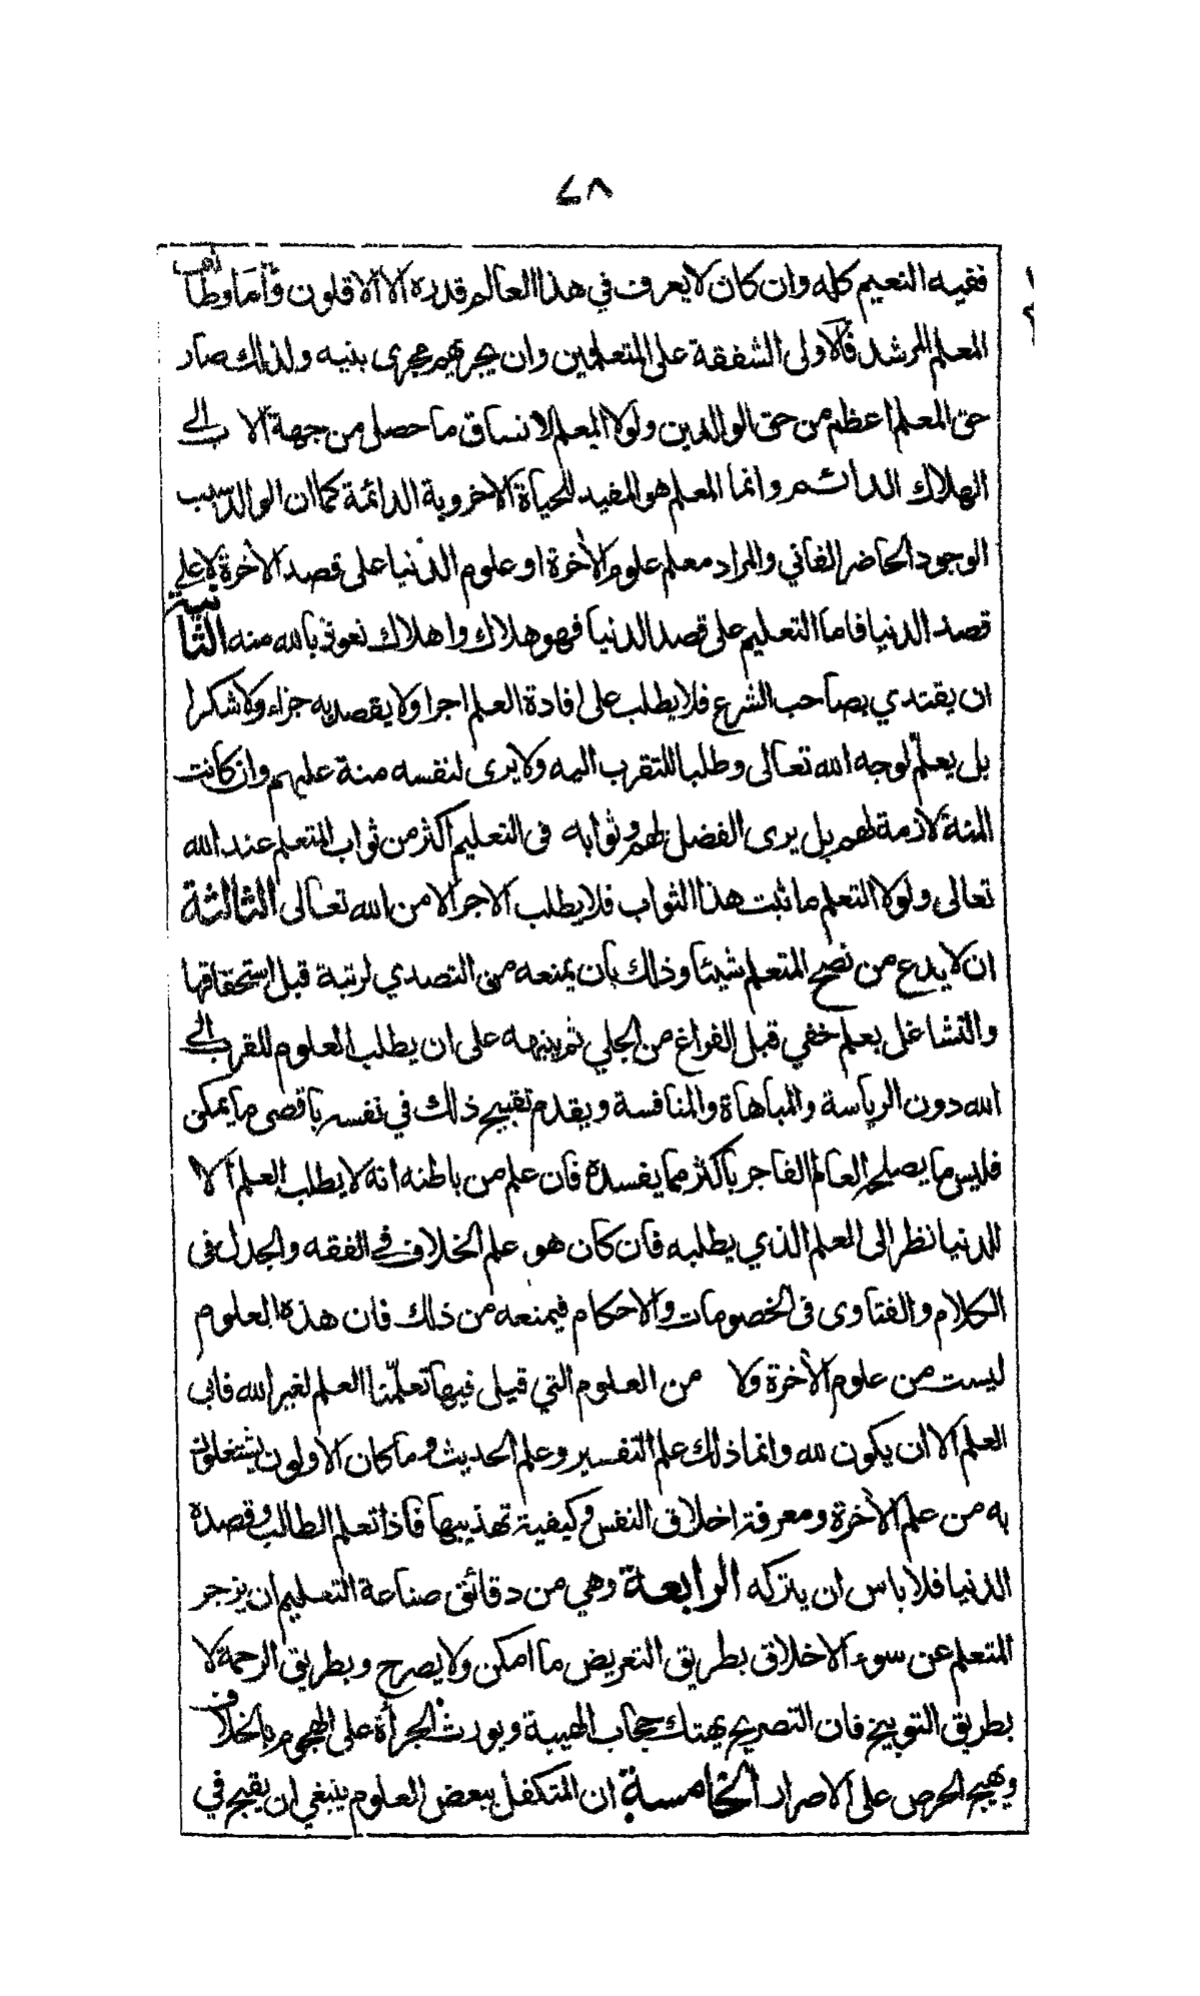 ٤٨
ففيه النعيم كله وان كان لا يعرف في هذا العالم قدره الا الاقلون وأما وظايف
المعلم المرشد فالاولى الشفقة على المتعلمين وان يجريهم مجرى بنيه ولذلك صار
حق المعلم اعظم من حق الوالدين ولولا المعلم لانساق ما حصل من جهة الاب الى
الهلاك الدائم وانما المعلم هو المفيد للحياة الاخروية الدائمة كما ان الوالد سبب
الوجود الحاضر الفاني والمراد معلم علوم الآخرة او علوم الدنيا على قصد الآخرة لا على
قصد الدنيا فاما التعليم على قصد الدنيا فهو هلاك واهلاك نعوذ بالله منه الثانية
ان يقتدي بصاحب الشرع فلا يطلب على افادة العلم اجرا ولا يقصد به جزاء ولا شكرا
بل يعلم لوجه الله تعالى وطلبا للتقرب اليه ولا يرى لنفسه منة عليهم وان كانت
المنة لازمة لهم بل يرى الفضل لهم وثوابه في التعليم أكثر من ثواب المتعلم عند الله
تعالى ولولا التعلم ما ثبت هذا الثواب فلا يطلب الاجر الا من الله تعالى الثالثة
ان لا يدع من نصح المتعلم شيئا وذلك بان يمنعه من التصدي لرتبة قبل استحقاقها
والتشاغل بعلم خفي قبل الفراغ من الجلي ثم ينبهه على ان يطلب العلوم للقرب الى
الله دون الرياسة والمباهاة والمنافسة ويقدم تقبيح ذلك في نفسه باقصى ما يمكن
فليس ما يصلحه العالم الفاجر باكثر مما يفسده فان علم من باطنه انه لا يطلب العلم الا
للدنيا نظر الى العلم الذي يطلبه فان كان هو علم الخلاف في الفقه والجدل في
الكلام والفتاوى في الخصومات والاحكام فيمنعه من ذلك فان هذه العلوم
ليست من علوم الآخرة ولا من العلوم التي قيل فيها تعلّمنا العلم لغير الله فابى
العلم الا ان يكون لله وانما ذلك علم التفسير وعلم الحديث وما كان الاولون يشتغلون
به من علم الآخرة ومعرفة اخلاق النفس وكيفية تهذيبها فاذا تعلم الطالب وقصده
الدنيا فلا باس ان يتركه الرابعة وهي من دقائق صناعة التعليم ان يزجر
المتعلم عن سوء الاخلاق بطريق التعريض ما امكن ولا يصرح وبطريق الرحمة لا
بطريق التوبيخ فان التصريح يهتك حجاب الهيبة ويورث الجرأة على الهجوم بالخلاف
ويهيج الحرص على الاصرار الخامسة ان المتكفل ببعض العلوم ينبغي ان يقبح في